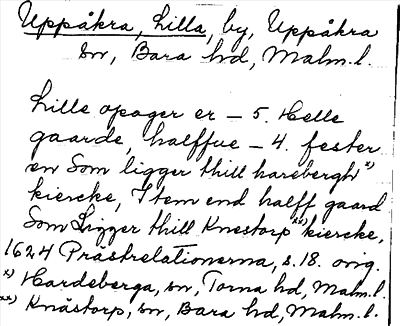 Uppåkra, Lilla, by, Uppåkra
sn, Bara hd, Malm. l.
Lille opager er — 5. Helle
gaarde, halffue — 4. fester
en Som ligger thill harebergh x)
kiercke, Item end halff gaard
Som Ligger thill Knestorp xx) kiercke,
1624 Prästrelationerna, s. 18. orig.
x) Hardeberga, sn, Torna hd, Malm. l.
xx) Knästorp, sn, Bara hd, Malm. l.